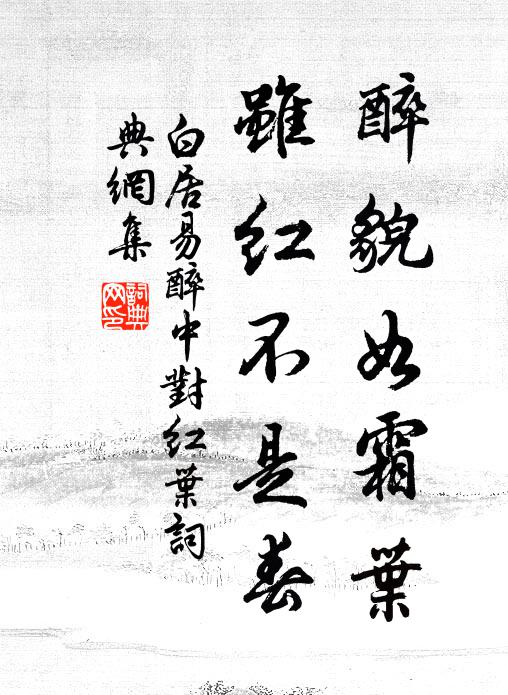 醉貌如霜葉
雖紅不是春
白居易醉中對紅葉詞
典網集
詞典網印